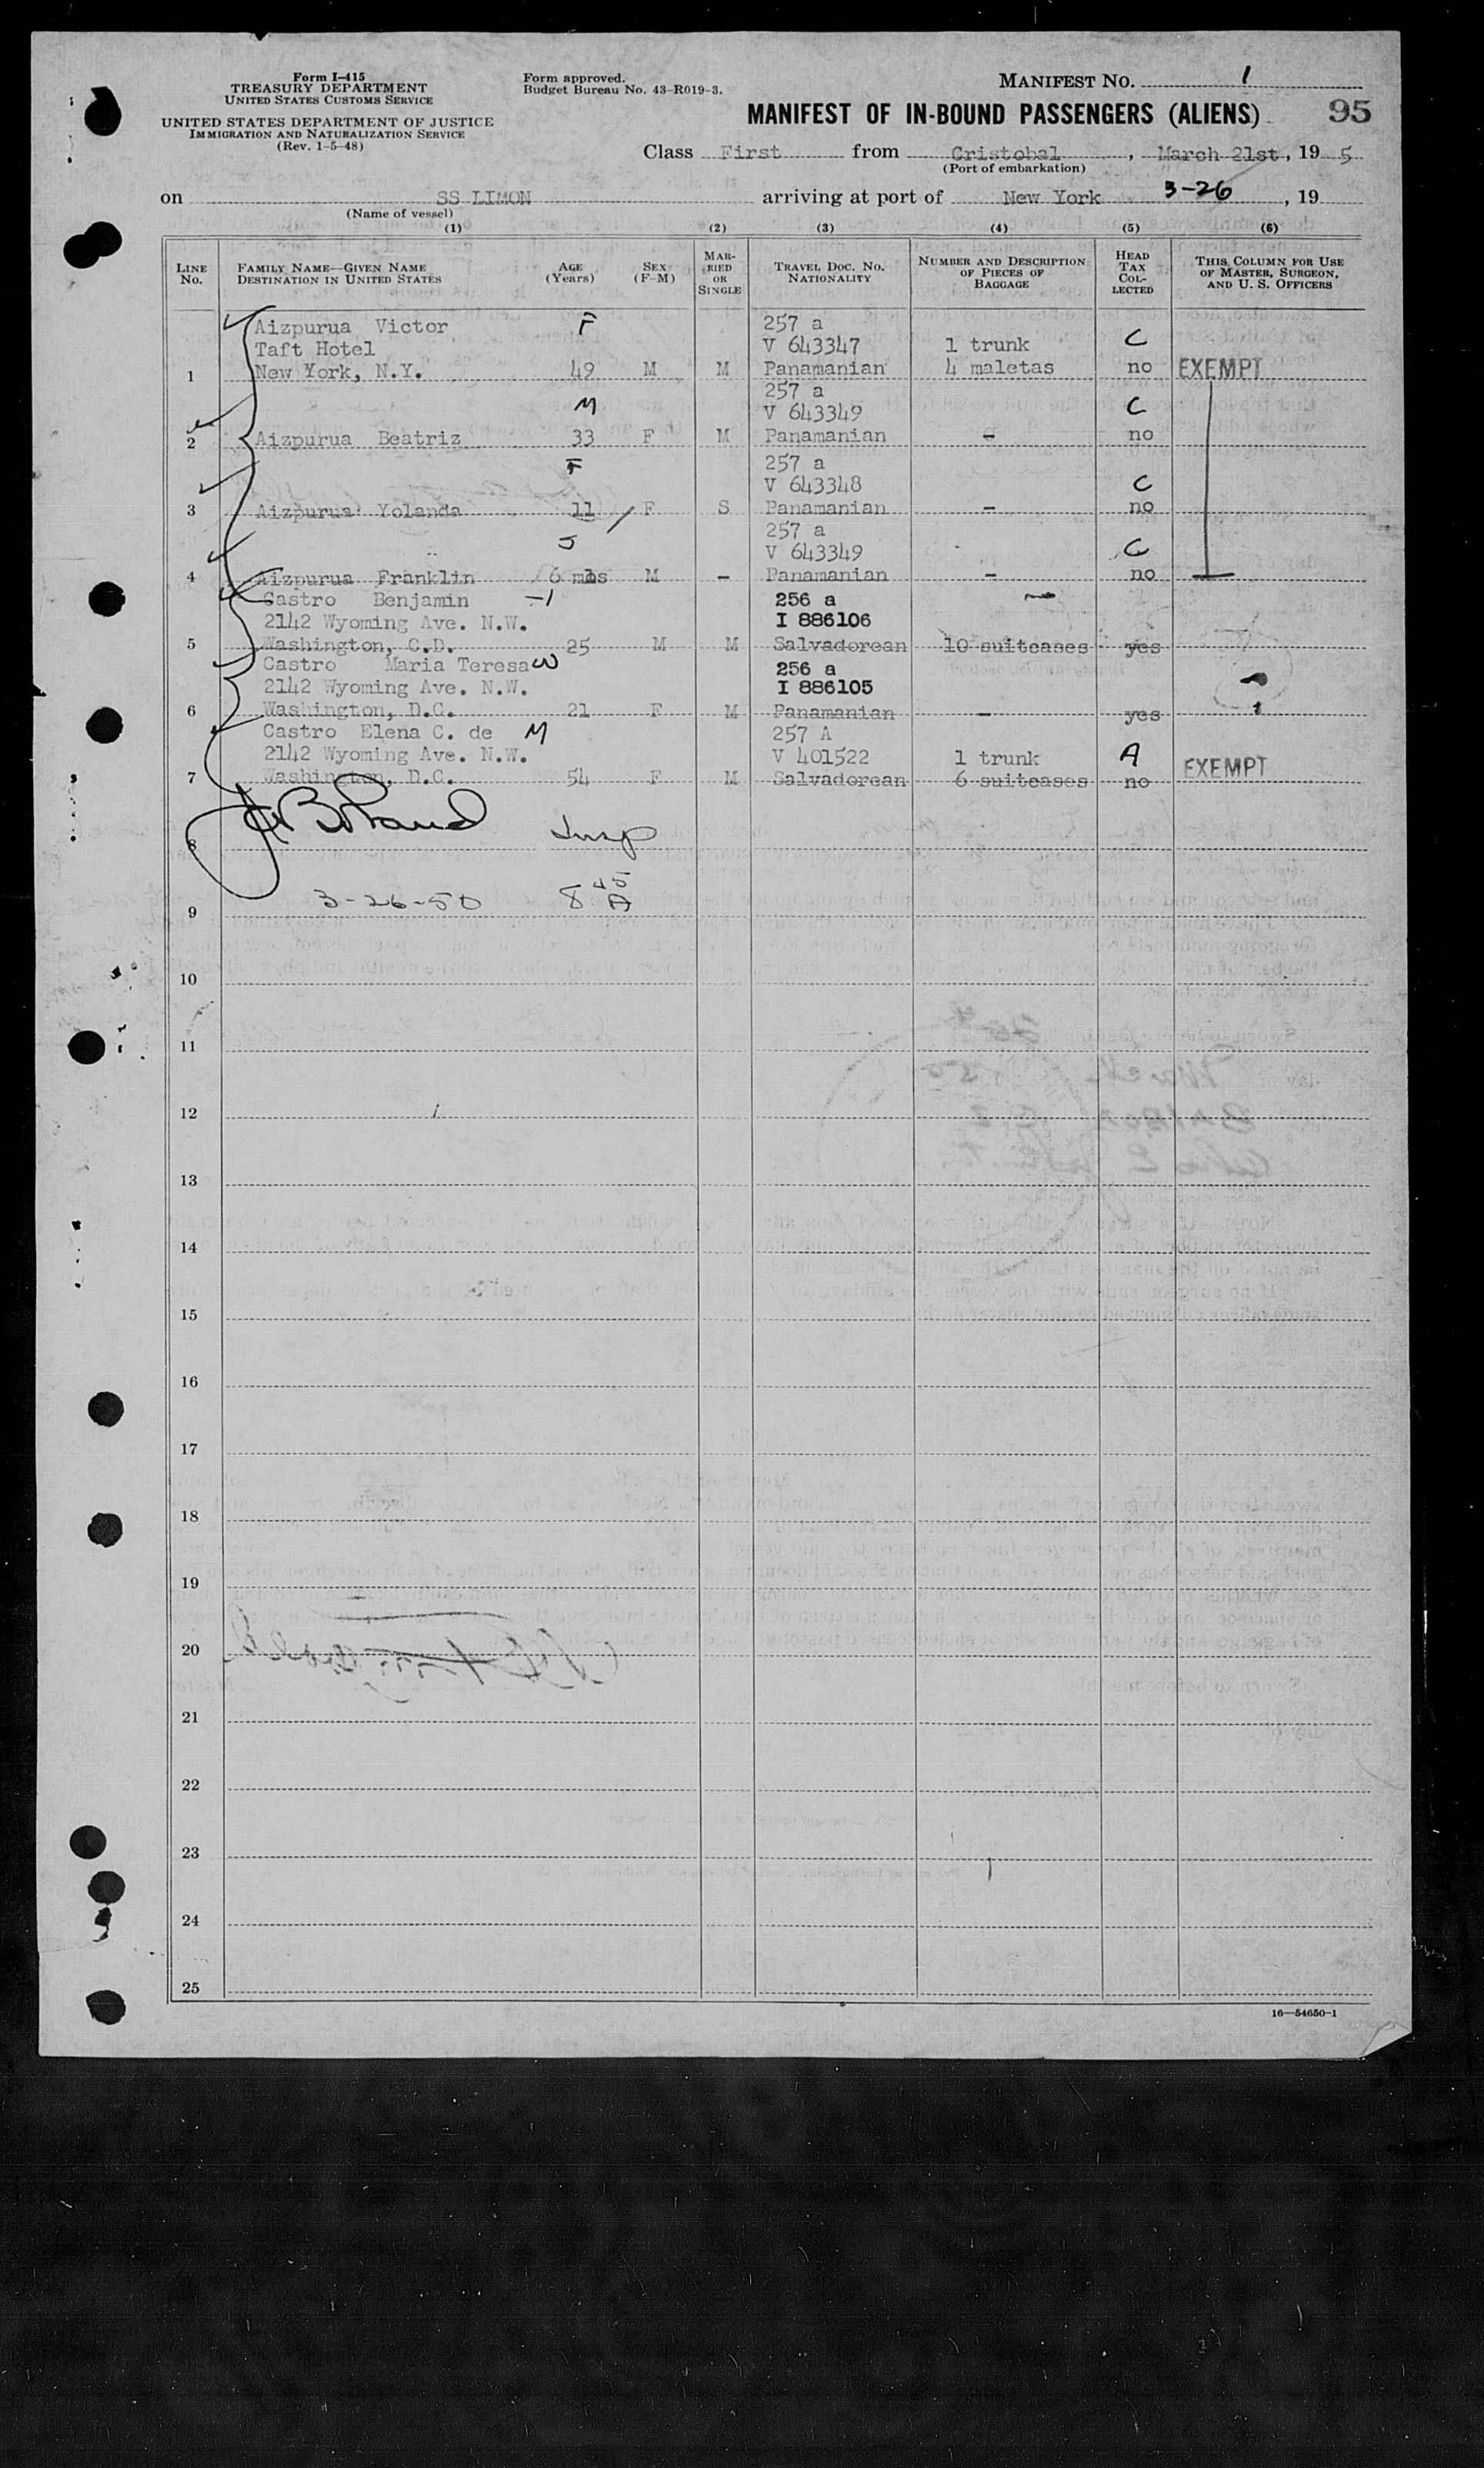 Form I-415
TREASURY DEPARTMENT
UNITED STATES CUSTOMS SERVICE
UNITED STATES DEPARTMENT OF JUSTICE
IMMIGRATION AND NATURALIZATION SERVICE
(Rev. 1-5-48)
Form approved.
Budget Bureau No. 43-R019-3.
MANIFEST NO. 1
MANIFEST OF IN-BOUND PASSENGERS (ALIENS) 95
Class First from Cristobal, March 21st, 19 5
(Port of embarkation)
on SS LIMON arriving at port of New York 3-26, 19
(Name of vessel)
(1) (2) (3) (4) (5) (6)
LINE No. FAMILY NAME—GIVEN NAME DESTINATION IN UNITED STATES AGE (Years) SEX (F-M) MARRIED OR SINGLE TRAVEL DOC. NO. NATIONALITY NUMBER AND DESCRIPTION OF PIECES OF BAGGAGE HEAD TAX COLLECTED THIS COLUMN FOR USE OF MASTER, SURGEON, AND U. S. OFFICERS
Aizpurua Victor F 257 a
Taft Hotel V 643347 1 trunk C
1 New York, N.Y. 49 M M Panamanian 4 maletas no EXEMPT
257 a
M V 643349 C
2 Aizpurua Beatriz 33 F M Panamanian - no
F 257 a
V 643348 C
3 Aizpurua Yolanda 11 F S Panamanian - no
257 a
V 643349 C
4 Aizpurua Franklin 6 mbs M - Panamanian - no
Castro Benjamin 256 a
2142 Wyoming Ave. N.W. I 886106
5 Washington, C.D. 25 M M Salvadorean 10 suitcases yes
Castro Maria Teresa W 256 a
2142 Wyoming Ave. N.W. I 886105
6 Washington, D.C. 21 F M Panamanian - yes
Castro Elena C. de M 257 A
2142 Wyoming Ave. N.W. V 401522 1 trunk A
7 Washington, D.C. 54 F M Salvadorean 6 suitcases no EXEMPT
8 Insp
9 3-26-50 8 45 A
10
11
12
13
14
15
16
17
18
19
20
21
22
23
24
25
16—54650-1